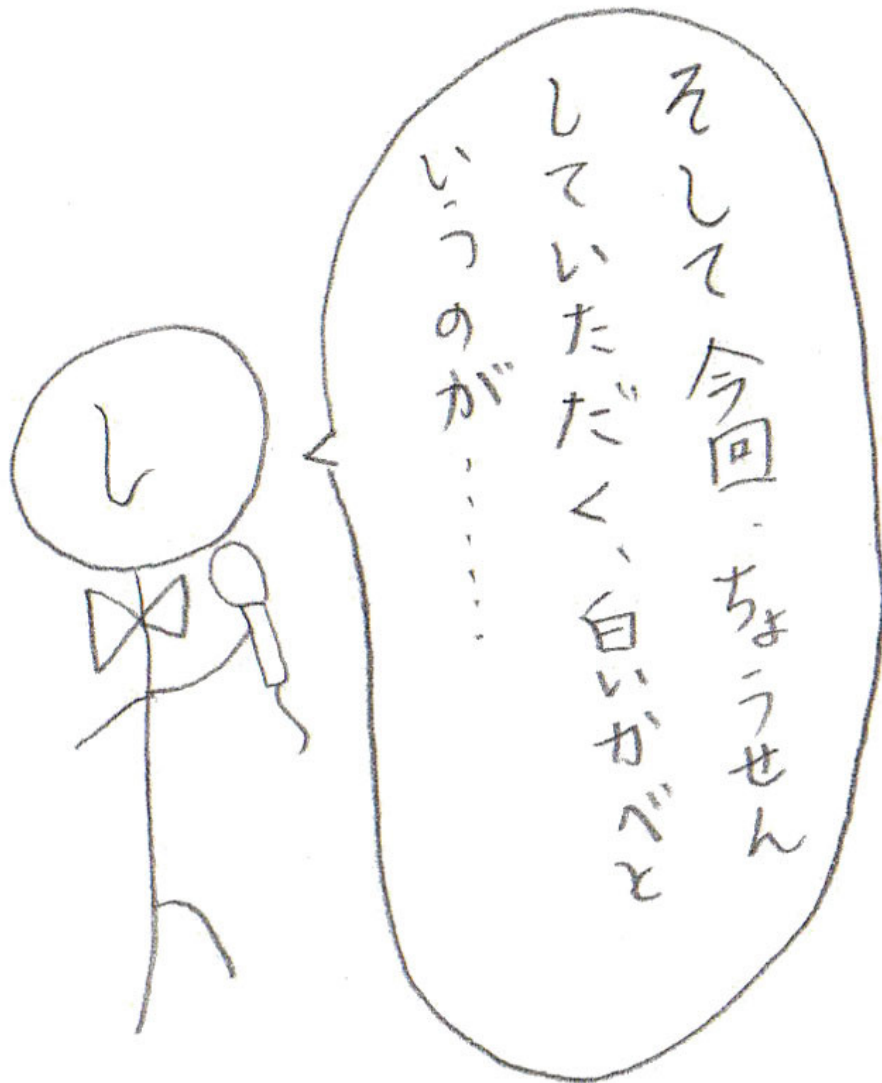 そして今回、ちょうせん
していただく、白いかべと
いうのが........